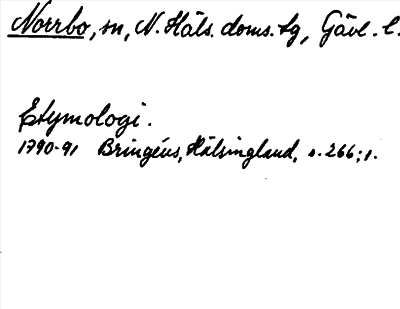 Norrbo, sn, N. Häls. doms. tg, Gävl. l.
Etymologi.
1790-91 Bringéus, Hälsingland, s. 266; 1.